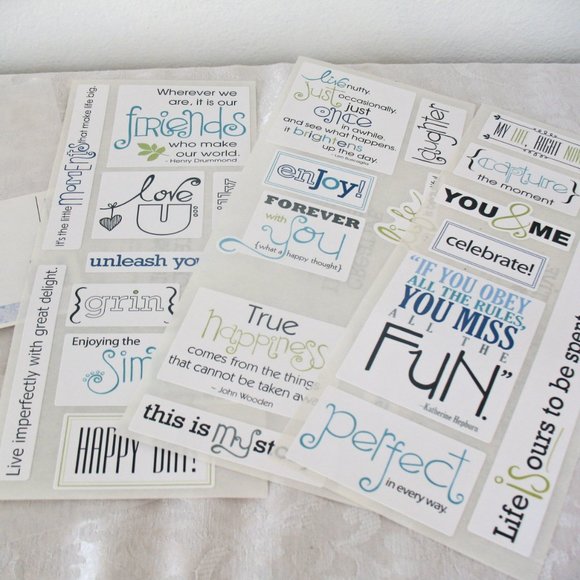 It's the little MOMENTS that make life big.
Wherever we
are, it is our
friends
who make
our world.
- Henry Drummond
love
U...
unleash you
{grin}
Live imperfectly with great delight.
Enjoying the
Sim
HAPPY DAY!
live nutty.
just occasionally.
just
once
in awhile.
and see what happens.
it brightens
up the day.
laughter
enjoy!
FOREVER
with
you
{what a happy thought}
life
True
happiness
comes from the things
that cannot be taken aw
- John Wooden
this is my sto
MY LIFE, RIGHT NOW
{capture}
the moment
YOU & ME
celebrate!
"IF YOU OBEY
ALL THE RULES,
YOU MISS
ALL THE
FUN."
-Katharine Hepburn
perfect
in every way.
Life is ours to be spent